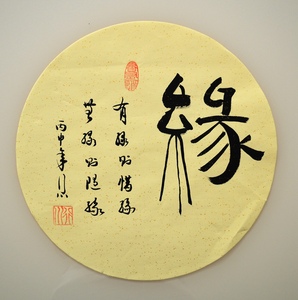 緣
有緣則惜緣
無緣則隨緣
丙申年